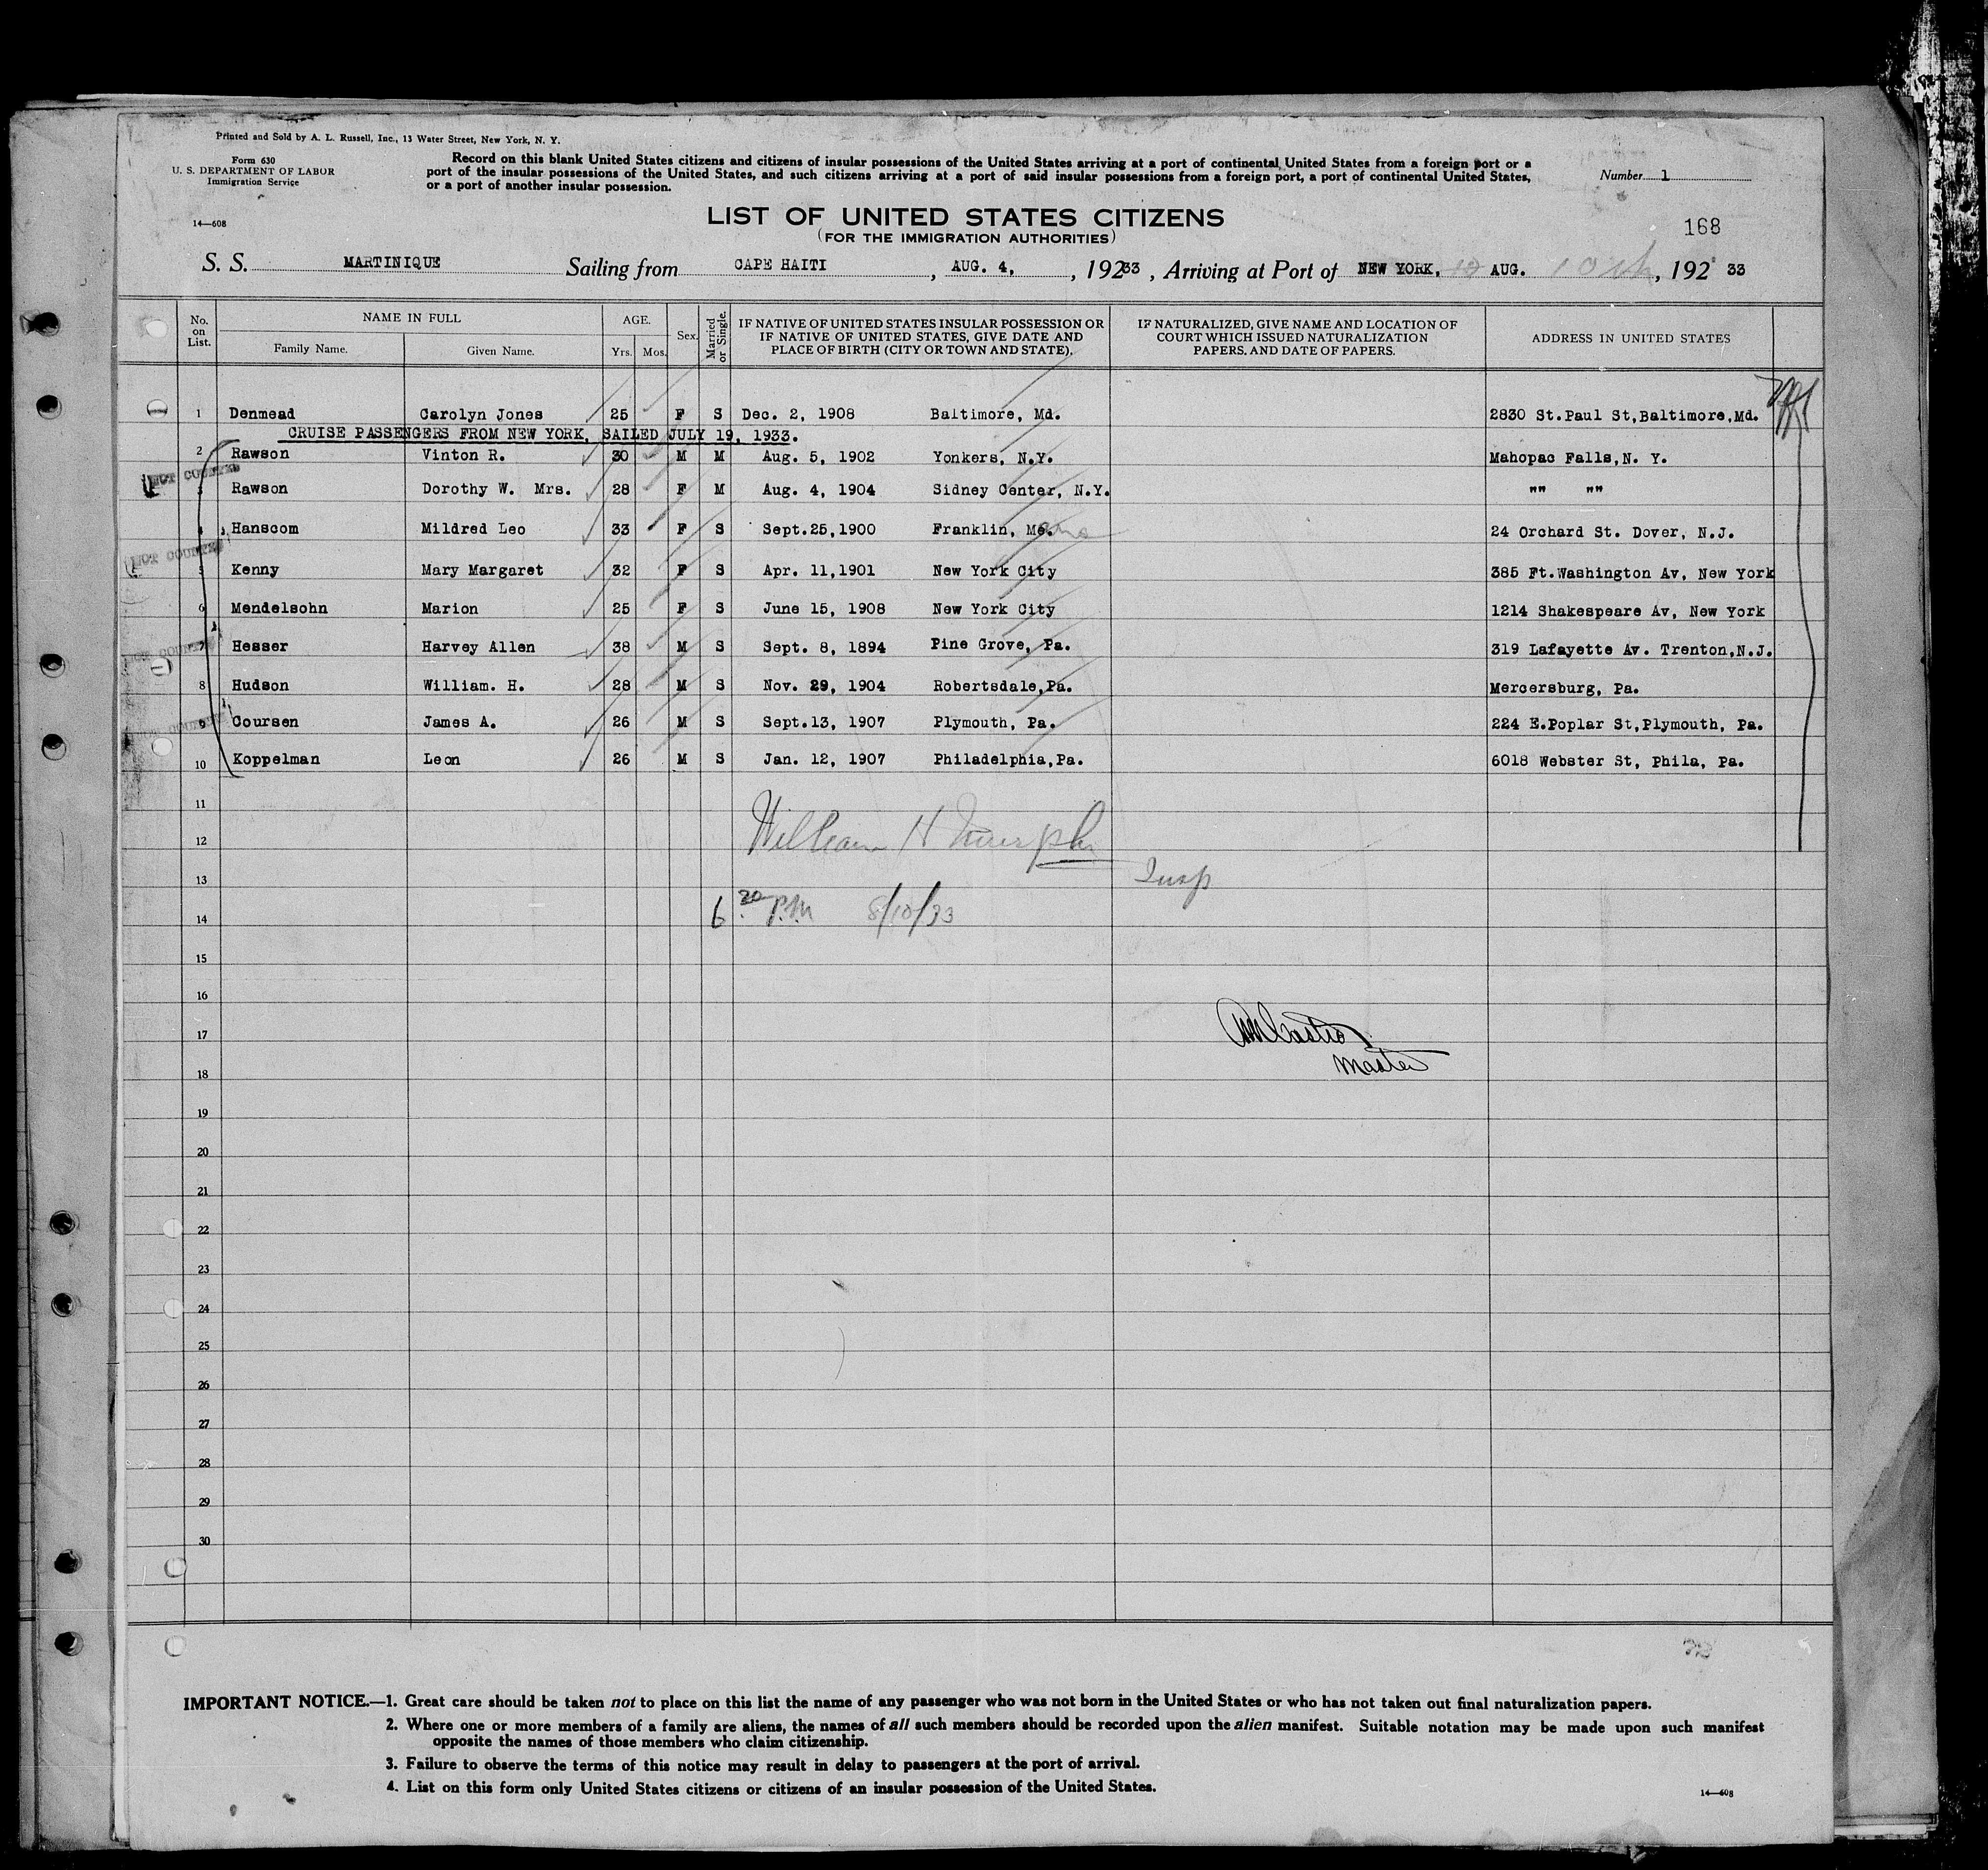 Printed and Sold by A. L. Russell, Inc., 13 Water Street, New York, N. Y.
Form 630
U. S. DEPARTMENT OF LABOR
Immigration Service
14—608
Record on this blank United States citizens and citizens of insular possessions of the United States arriving at a port of continental United States from a foreign port or a
port of the insular possessions of the United States, and such citizens arriving at a port of said insular possessions from a foreign port, a port of continental United States,
or a port of another insular possession.
Number 1
LIST OF UNITED STATES CITIZENS
(FOR THE IMMIGRATION AUTHORITIES)
168
S. S. MARTINIQUE Sailing from CAPE HAITI, AUG. 4, , 19233, Arriving at Port of NEW YORK, AUG. 10th, 192 33
No. on List. NAME IN FULL Family Name. Given Name. AGE. Yrs. Mos. Sex. Married or Single. IF NATIVE OF UNITED STATES INSULAR POSSESSION OR IF NATIVE OF UNITED STATES, GIVE DATE AND PLACE OF BIRTH (CITY OR TOWN AND STATE). IF NATURALIZED, GIVE NAME AND LOCATION OF COURT WHICH ISSUED NATURALIZATION PAPERS, AND DATE OF PAPERS. ADDRESS IN UNITED STATES
1 Denmead Carolyn Jones 25 F S Dec. 2, 1908 Baltimore, Md. 2830 St.Paul St,Baltimore,Md.
CRUISE PASSENGERS FROM NEW YORK, SAILED JULY 19, 1933.
2 Rawson Vinton R. 30 M M Aug. 5, 1902 Yonkers, N.Y. Mahopac Falls,N. Y.
NOT COUNTED
3 Rawson Dorothy W. Mrs. 28 F M Aug. 4, 1904 Sidney Center, N.Y. "" ""
4 Hanscom Mildred Leo 33 F S Sept.25,1900 Franklin, Me. 24 Orchard St. Dover, N.J.
NOT COUNTED
5 Kenny Mary Margaret 32 F S Apr. 11,1901 New York City 385 Ft.Washington Av, New York
6 Mendelsohn Marion 25 F S June 15, 1908 New York City 1214 Shakespeare Av, New York
7 Hesser Harvey Allen 38 M S Sept. 8, 1894 Pine Grove, Pa. 319 Lafayette Av. Trenton,N.J.
8 Hudson William. H. 28 M S Nov. 29, 1904 Robertsdale,Pa. Mercersburg, Pa.
9 Coursen James A. 26 M S Sept.13, 1907 Plymouth, Pa. 224 E.Poplar St,Plymouth, Pa.
10 Koppelman Leon 26 M S Jan. 12, 1907 Philadelphia,Pa. 6018 Webster St, Phila, Pa.
11
12 William H Murphy
13 Insp
14 6 30 P.M 8/10/33
15
16
17
18 Master
19
20
21
22
23
24
25
26
27
28
29
30
IMPORTANT NOTICE.—1. Great care should be taken not to place on this list the name of any passenger who was not born in the United States or who has not taken out final naturalization papers.
2. Where one or more members of a family are aliens, the names of all such members should be recorded upon the alien manifest. Suitable notation may be made upon such manifest
opposite the names of those members who claim citizenship.
3. Failure to observe the terms of this notice may result in delay to passengers at the port of arrival.
4. List on this form only United States citizens or citizens of an insular possession of the United States.
14—608